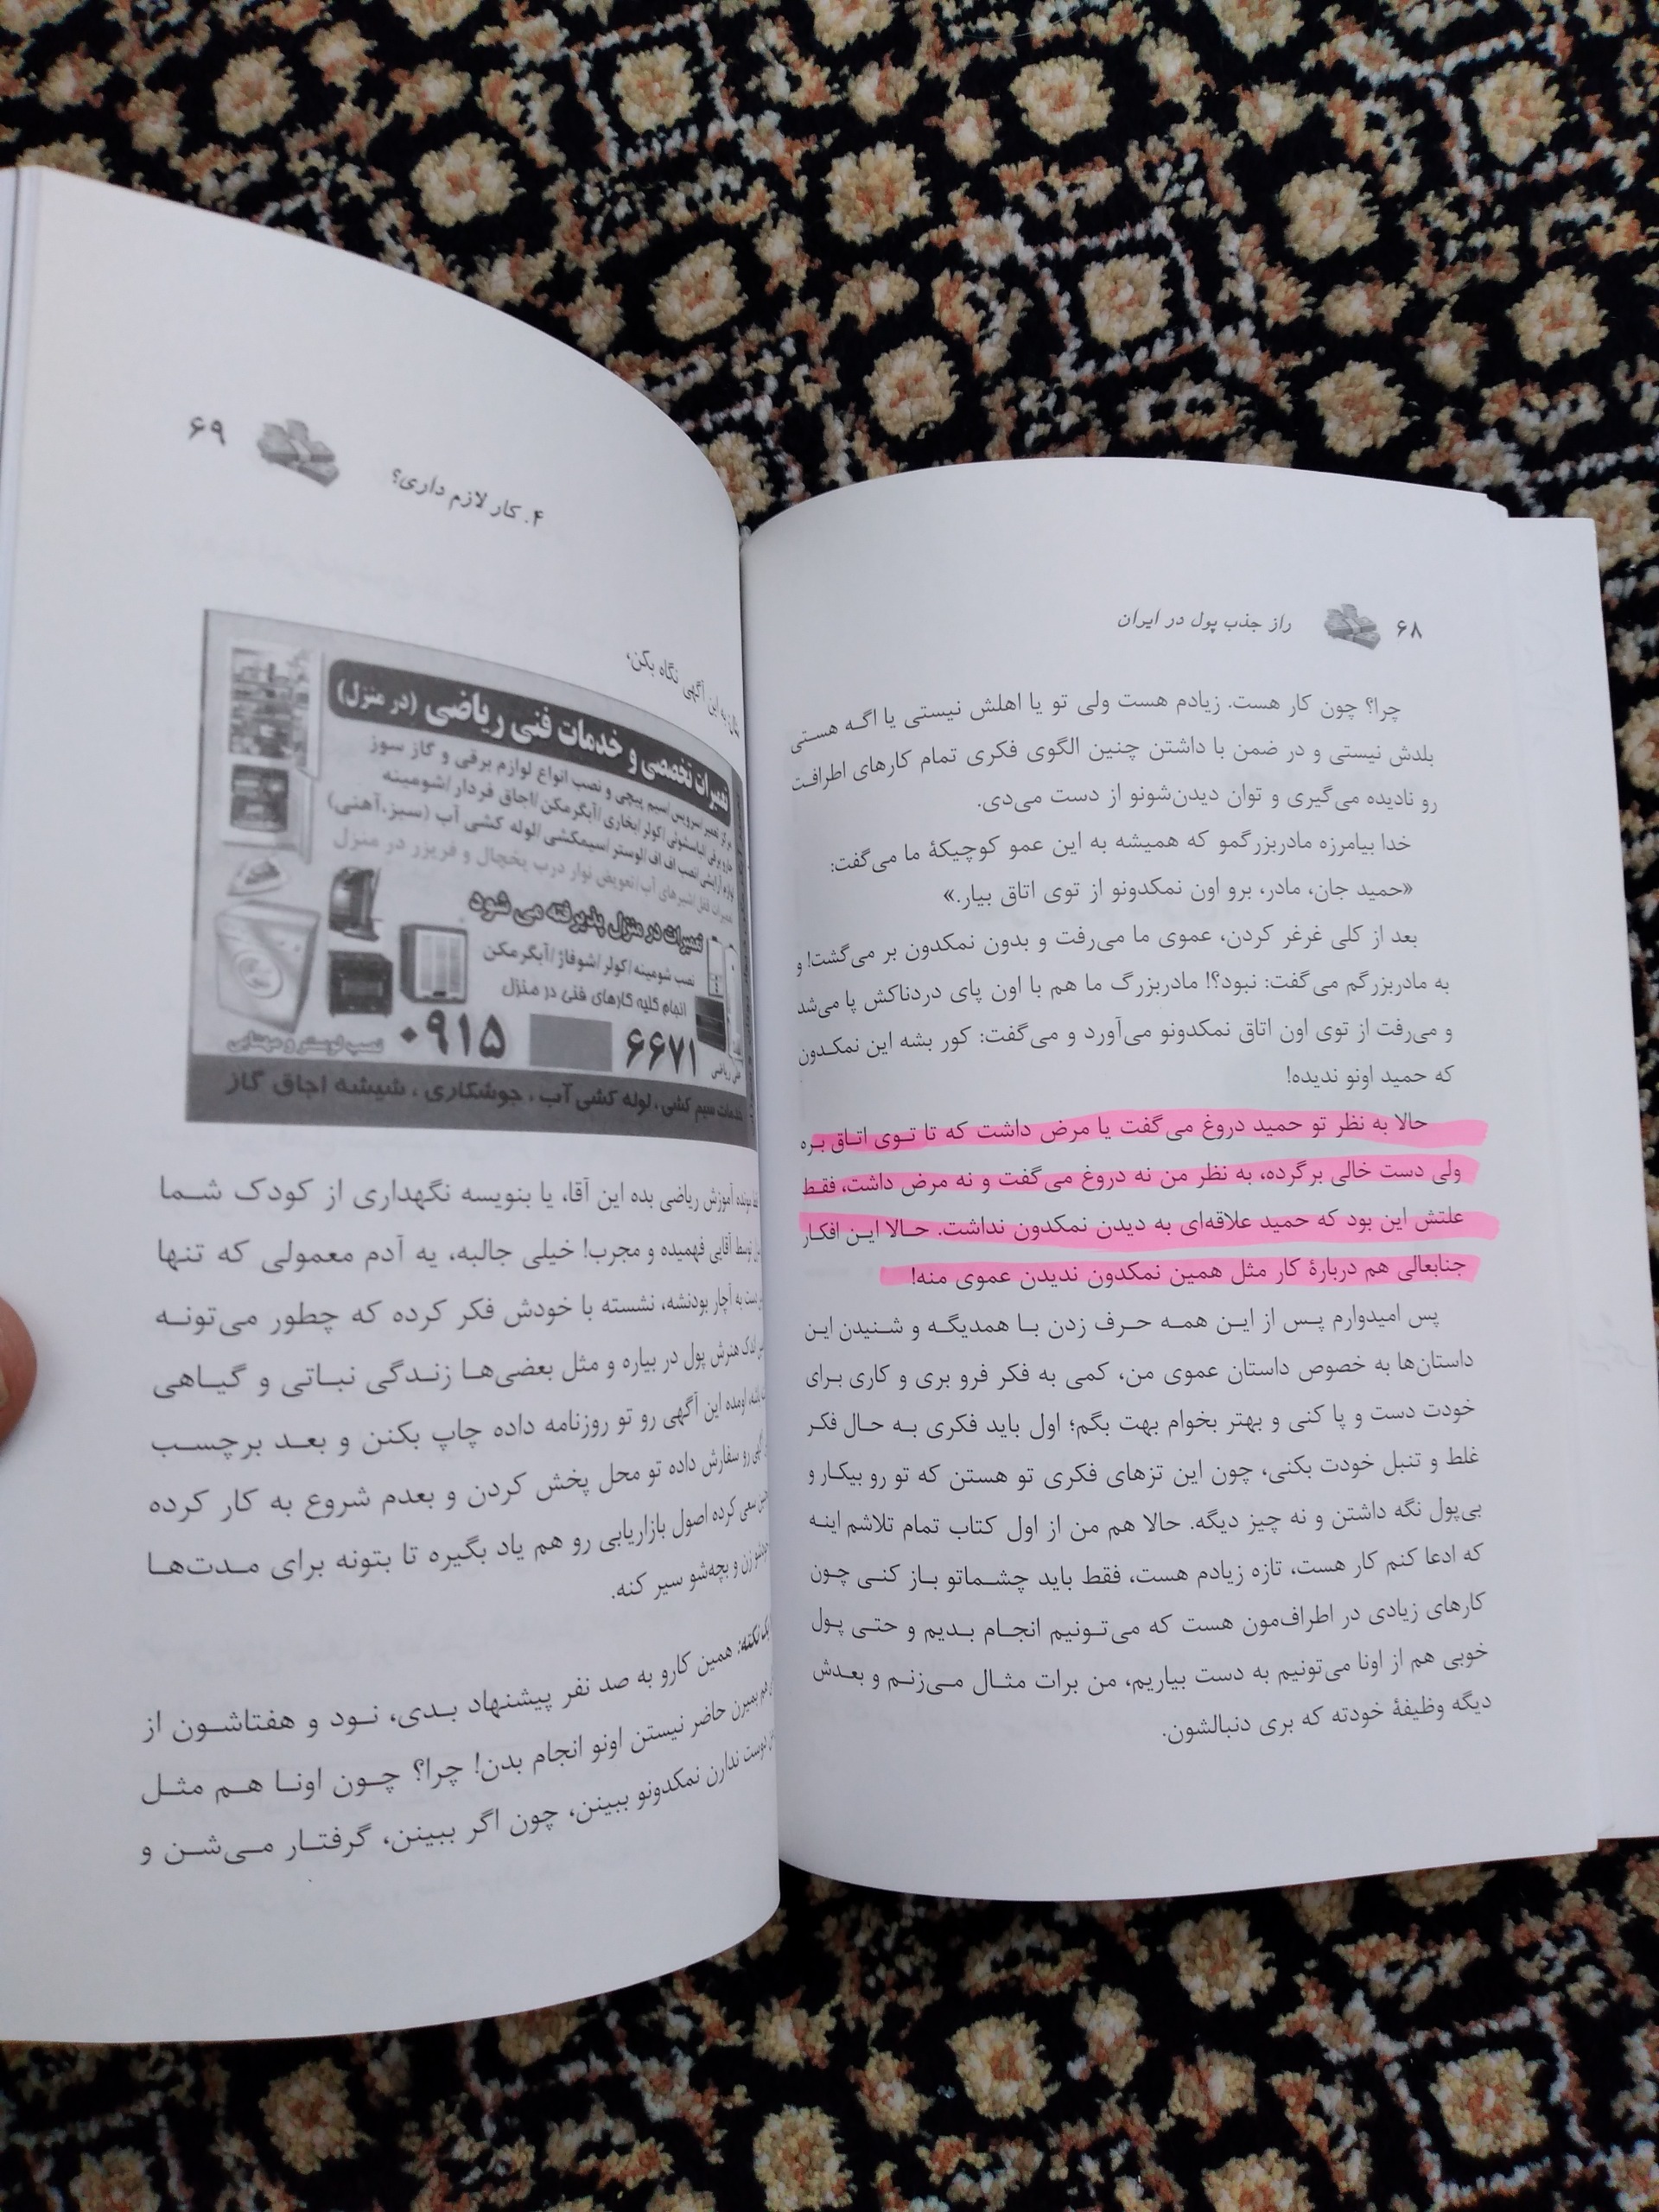 ۶۸
راز جذب پول در ایران
چرا؟ چون کار هست. زیادم هست ولی تو یا اهلش نیستی یا اگه هستی
بلدش نیستی و در ضمن با داشتن چنین الگوی فکری تمام کارهای اطرافت
رو نادیده می‌گیری و توان دیدن‌شونو از دست می‌دی.
خدا بیامرزه مادربزرگمو که همیشه به این عمو کوچیکهٔ ما می‌گفت:
«حمید جان، مادر، برو اون نمکدونو از توی اتاق بیار.»
بعد از کلی غرغر کردن، عموی ما می‌رفت و بدون نمکدون بر می‌گشت! و
به مادربزرگم می‌گفت: نبود؟! مادربزرگ ما هم با اون پای دردناکش پا می‌شد
و می‌رفت از توی اون اتاق نمکدونو می‌آورد و می‌گفت: کور بشه این نمکدون
که حمید اونو ندیده!
حالا به نظر تو حمید دروغ می‌گفت یا مرض داشت که تا توی اتاق بره
ولی دست خالی برگرده، به نظر من نه دروغ می‌گفت و نه مرض داشت، فقط
علتش این بود که حمید علاقه‌ای به دیدن نمکدون نداشت. حالا این افکار
جنابعالی هم دربارهٔ کار مثل همین نمکدون ندیدن عموی منه!
پس امیدوارم پس از این همه حرف زدن با همدیگه و شنیدن این
داستان‌ها به خصوص داستان عموی من، کمی به فکر فرو بری و کاری برای
خودت دست و پا کنی و بهتر بخوام بهت بگم؛ اول باید فکری به حال فکر
غلط و تنبل خودت بکنی، چون این تزهای فکری تو هستن که تو رو بیکار و
بی‌پول نگه داشتن و نه چیز دیگه. حالا هم من از اول کتاب تمام تلاشم اینه
که ادعا کنم کار هست، تازه زیادم هست، فقط باید چشماتو باز کنی چون
کارهای زیادی در اطراف‌مون هست که می‌تونیم انجام بدیم و حتی پول
خوبی هم از اونا می‌تونیم به دست بیاریم، من برات مثال می‌زنم و بعدش
دیگه وظیفهٔ خودته که بری دنبالشون.
۴. کار لازم داری؟
۶۹
به این آگهی نگاه بکن،
تعمیرات تخصصی و خدمات فنی ریاضی (در منزل)
تعمیر/سرویس/سیم پیچی و نصب انواع لوازم برقی و گاز سوز
جارو برقی/لباسشوئی/کولر/بخاری/آبگرمکن/اجاق فردار/شومینه
لوازم آرایشی/نصب اف اف/لوستر/سیمکشی/لوله کشی آب (سبز،آهنی)
تعمیرات قفل/شیرهای آب/تعویض نوار درب یخچال و فریزر در منزل
تعمیرات در منزل پذیرفته می شود
نصب شومینه/کولر/شوفاژ/آبگرمکن
انجام کلیه کارهای فنی در منزل
۰۹۱۵ ۶۶۷۱
نصب لوستر و مهتابی
خدمات سیم کشی ، لوله کشی آب ، جوشکاری ، شیشه اجاق گاز
مونده آموزش ریاضی بده این آقا، یا بنویسه نگهداری از کودک شما
توسط آقایی فهمیده و مجرب! خیلی جالبه، یه آدم معمولی که تنها
دست به آچار بودنشه، نشسته با خودش فکر کرده که چطور می‌تونه
اندک هنرش پول در بیاره و مثل بعضی‌ها زندگی نباتی و گیاهی
باشه، اومده این آگهی رو تو روزنامه داده چاپ بکنن و بعد برچسب
رو سفارش داده تو محل پخش کردن و بعدم شروع به کار کرده
سعی کرده اصول بازاریابی رو هم یاد بگیره تا بتونه برای مدت‌ها
زن و بچه‌شو سیر کنه.
یک نکته: همین کارو به صد نفر پیشنهاد بدی، نود و هفتاشون از
هم بمیرن حاضر نیستن اونو انجام بدن! چرا؟ چون اونا هم مثل
دوست ندارن نمکدونو ببینن، چون اگر ببینن، گرفتار می‌شن و